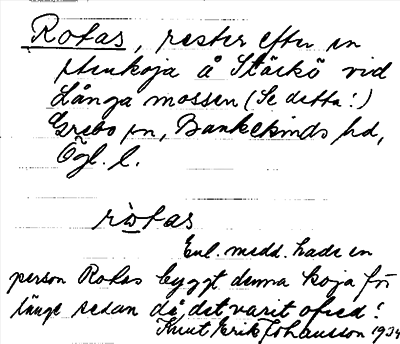 Rotas, rester efter en
stenkoja å Stäckö vid
Långa mossen (Se detta!)
Grebo sn, Bankekinds hd,
Ögl. l.
rotas
Enl. medd. hade en
person Rotas byggt denna koja för
länge sedan då det varit ofred!
Knut Erik Johansson 1934